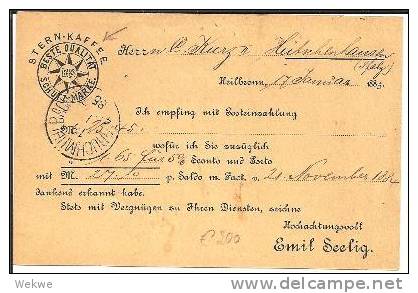 STERN-KAFFEE
BESTE QUALITÄT
SCHUTZ-MARKE
Herrn C. Kurz Hütschenhausen
(Pfalz)
Heilbronn, 17 Januar 188
Ich empfing mit Posteinzahlung
45.
wofür ich Sie zuzüglich
1.65 für 5% Sconto und Porto
mit M. p. Saldo m. Fact. v. 21 November
dankend erkannt habe.
Stets mit Vergnügen zu Ihren Diensten, zeichne
Hochachtungsvoll
Emil Seelig.
€ 200
Wekwe
delcampe.net